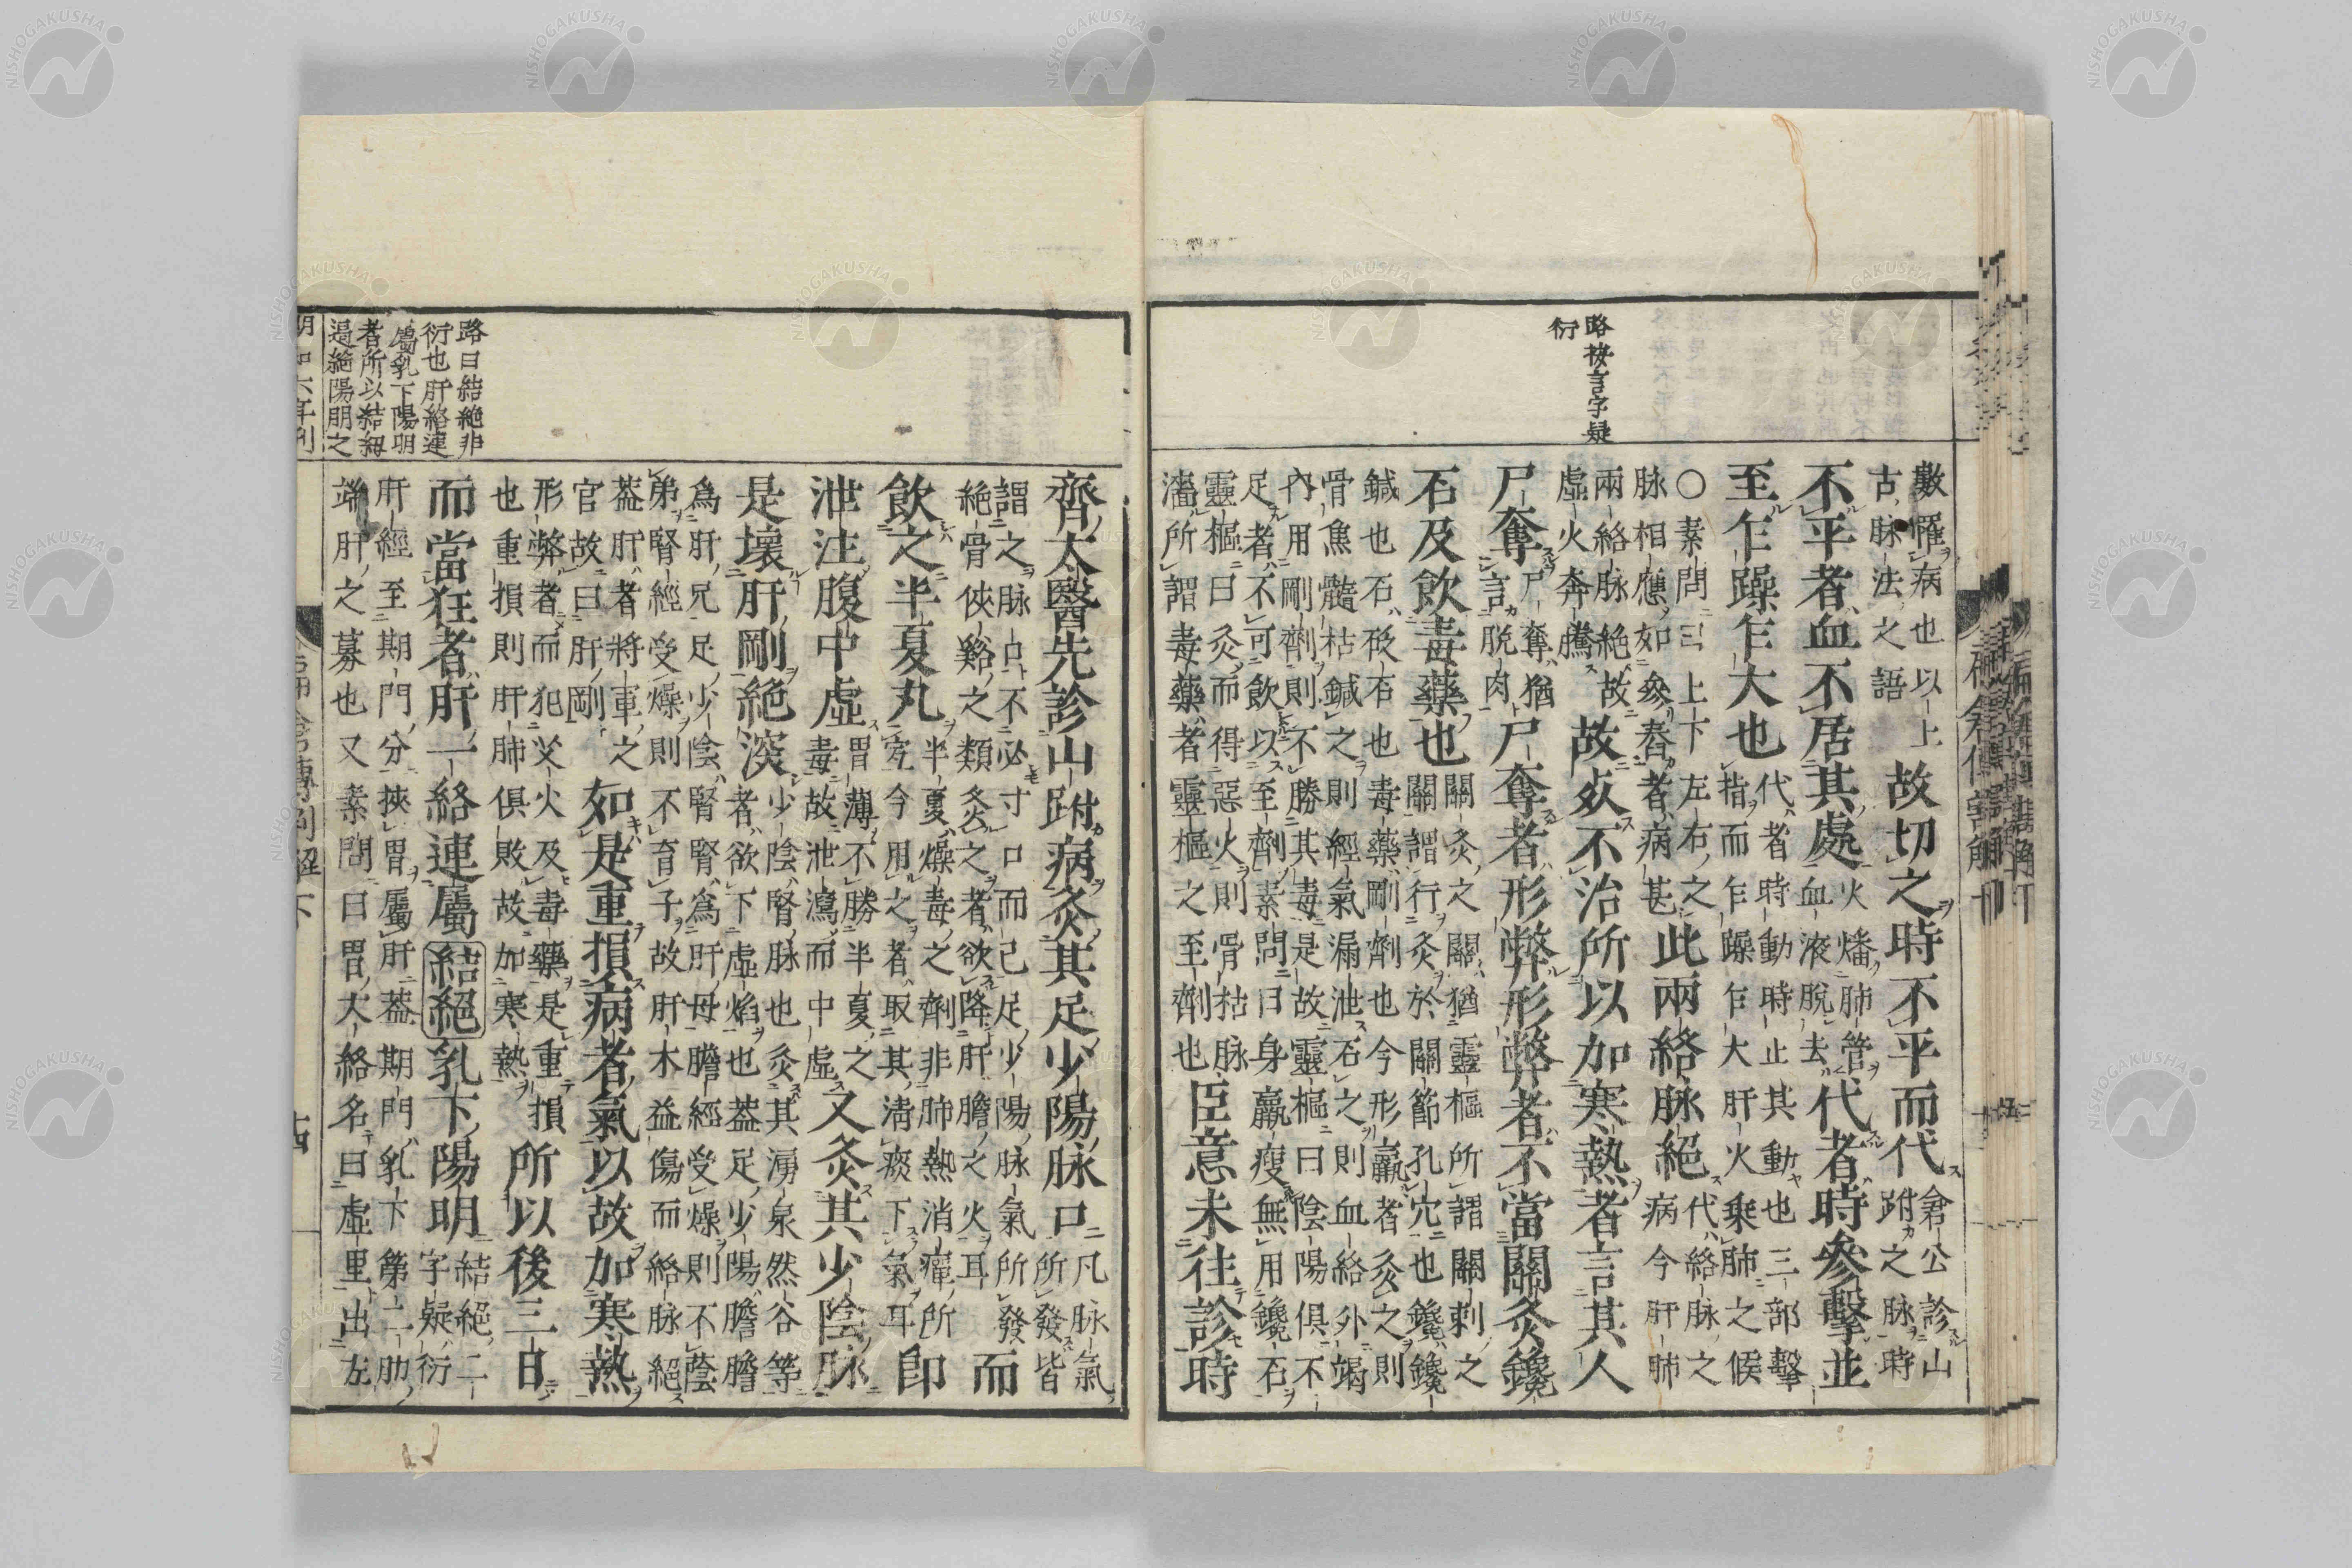 路按言字疑
衍
數罹病也以上
古脉法之語
故切之時不平而代
倉公診山
跗之脉時
不平者血不居其處
火燔肺管
血液脫去
代者時參擊並
至乍躁乍大也
代者時動時止其動也三部擊
指而乍躁乍大肝火乗肺之候
○素問曰上下左右之
脉相應如參舂者病甚
此兩絡脉絶
代絡脉之
病今肝肺
兩絡脉絶故
虛火奔騰
故死不治所以加寒熱者言其人
尸奪
尸奪猶
言脫肉
尸奪者形弊形弊者不當關灸鑱
石及飲毒藥也
關灸之關猶靈樞所謂關刺之
關謂行灸於關節孔穴也鑱鑱
鍼也石砭石也毒藥剛劑也今形羸者灸之則
骨焦髓枯鍼之則經氣漏泄石之則血絡外竭
內用剛劑則不勝其毒是故靈樞曰陰陽俱不
足者不可飲以至劑素問曰身羸瘦無用鑱石
靈樞曰灸而得惡火則骨枯脉
濇所謂毒藥者靈樞之至劑也
臣意未往診時
齊太醫先診山跗病灸其足少陽脉口
凡脉氣
所發皆
謂之脉口不必寸口而已足少陽脉氣所發
絶骨俠谿之類灸之者欲降肝膽之火耳
而
飲之半夏丸
半夏燥毒之劑非肺熱消癉所
宐今用之者取其淸痰下氣耳
即
泄注腹中虛
胃薄不勝半夏之
毒故泄瀉而中虛
又灸其少陰脉
是壞肝剛絶深
少陰腎脉也灸其湧泉然谷等
者欲下虛焰也葢足少陽膽膽
爲肝兄足少陰腎腎爲肝母膽經受燥則不蔭
弟腎經受燥則不育子故肝木益傷而絡脉絶
葢肝者將軍之
官故曰肝剛
如是重損病者氣以故加寒熱
形弊者而犯艾火及毒藥是重損
也重損則肝肺俱敗故加寒熱
所以後三日
而當狂者肝一絡連屬結絶乳下陽明
結絶二
字疑衍
路曰結絶非
衍也肝絡連
屬乳下陽明
者所以結
逼絶陽明之
肝經至期門分挾胃屬肝葢期門乳下第二肋
端肝之募也又素問曰胃大絡名曰虛里出左
明和六年刋
倉傳割解下
十四